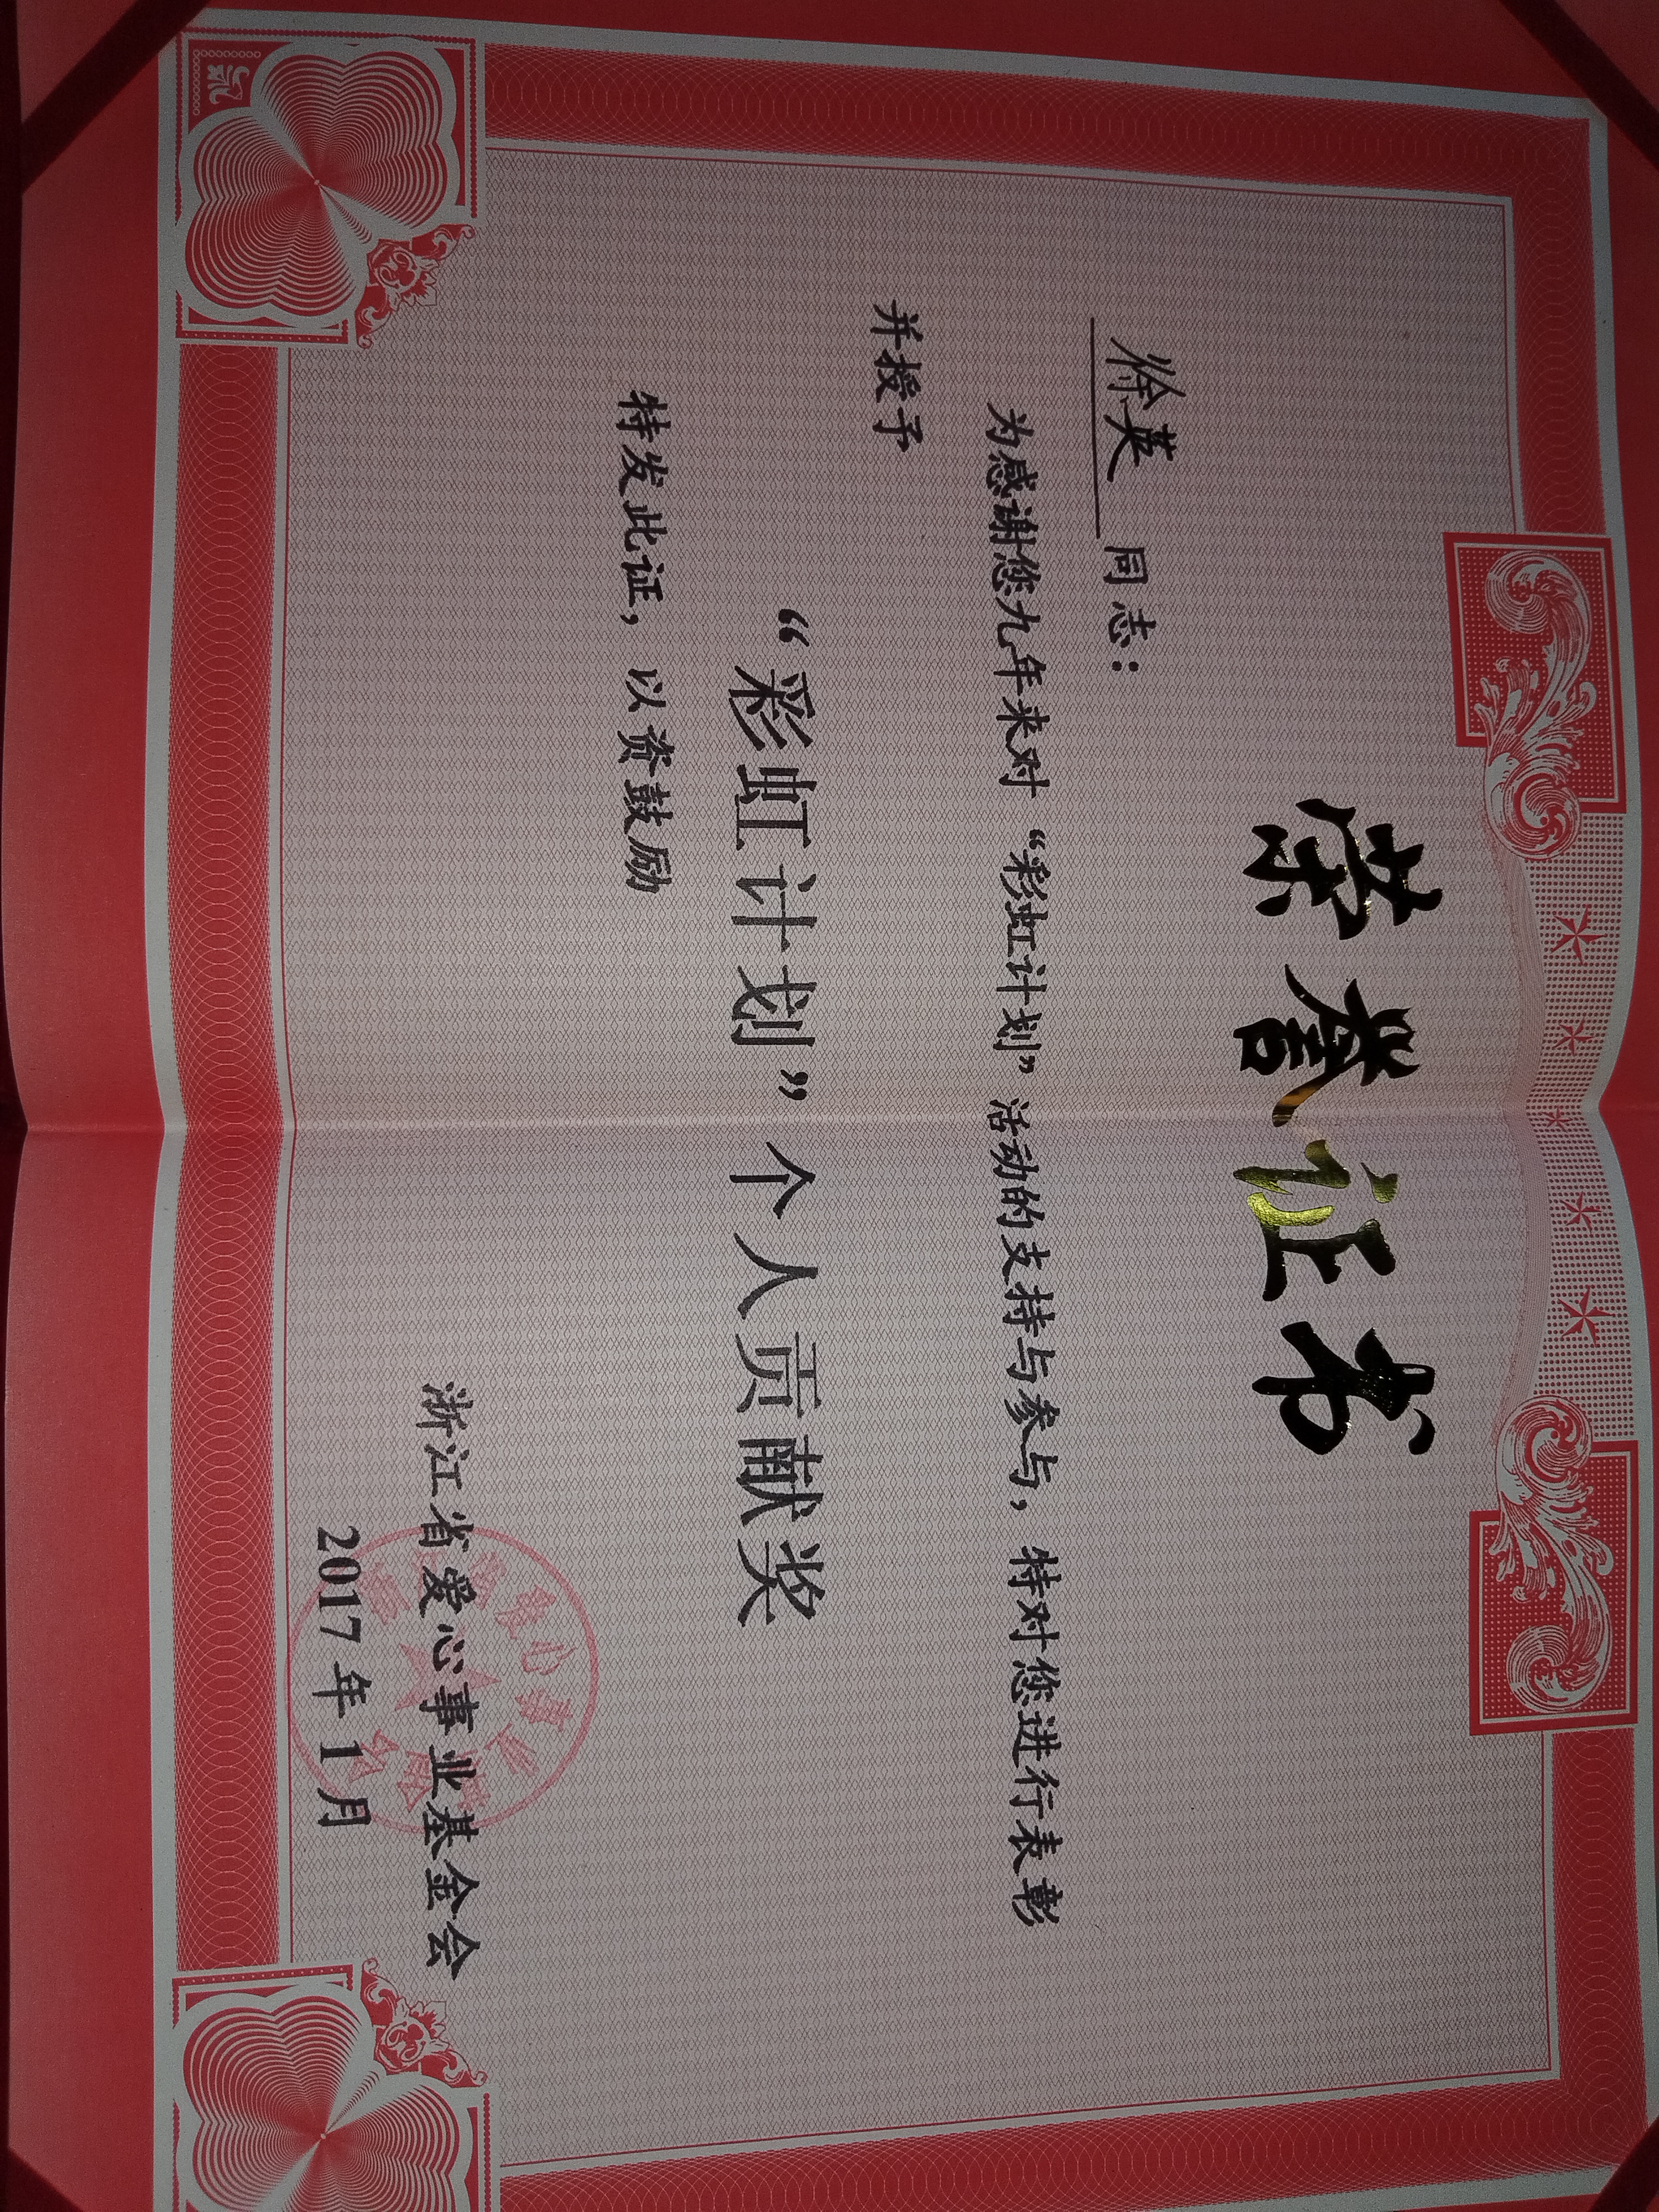 荣誉证书
徐英 同志：
为感谢您九年来对“彩虹计划”活动的支持与参与，特对您进行表彰
并授予
“彩虹计划”个人贡献奖
特发此证，以资鼓励
浙江省爱心事业基金会
2017年1月